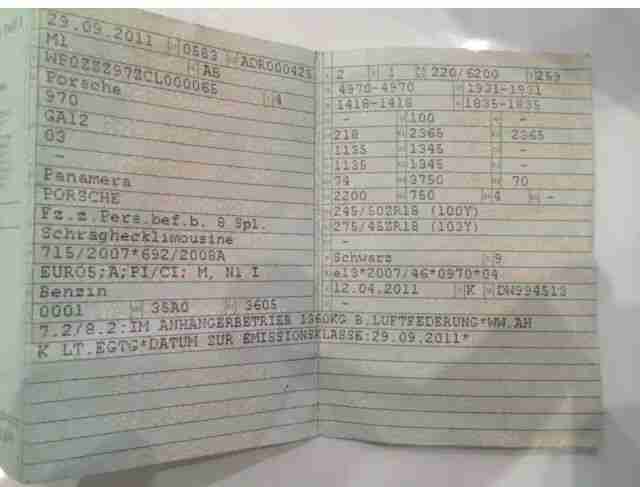 29.09.2011 0583 ADR000425
M1 A6
WP0ZZZ97ZCL000065
Porsche 4
970
GA12
03
-
Panamera
PORSCHE
Fz.z.Pers.bef.b. 8 Spl.
Schräghecklimousine
715/2007*692/2008A
EURO5;A;PI/CI; M, N1 I
Benzin
0001 35A0 3605
7.2/8.2:IM ANHÄNGERBETRIEB 1360KG B.LUFTFEDERUNG*WW.AH
K LT.EGTG*DATUM ZUR EMISSIONSKLASSE:29.09.2011*
2 1 220/6200 259
4970-4970 1931-1931
1418-1418 1835-1835
- 100 -
218 2365 2365
1135 1345 -
1135 1345 -
74 3750 70
2200 750 4 -
245/50ZR18 (100Y)
275/45ZR18 (103Y)
-
Schwarz 9
e13*2007/46*0970*04
12.04.2011 K DW994513
-